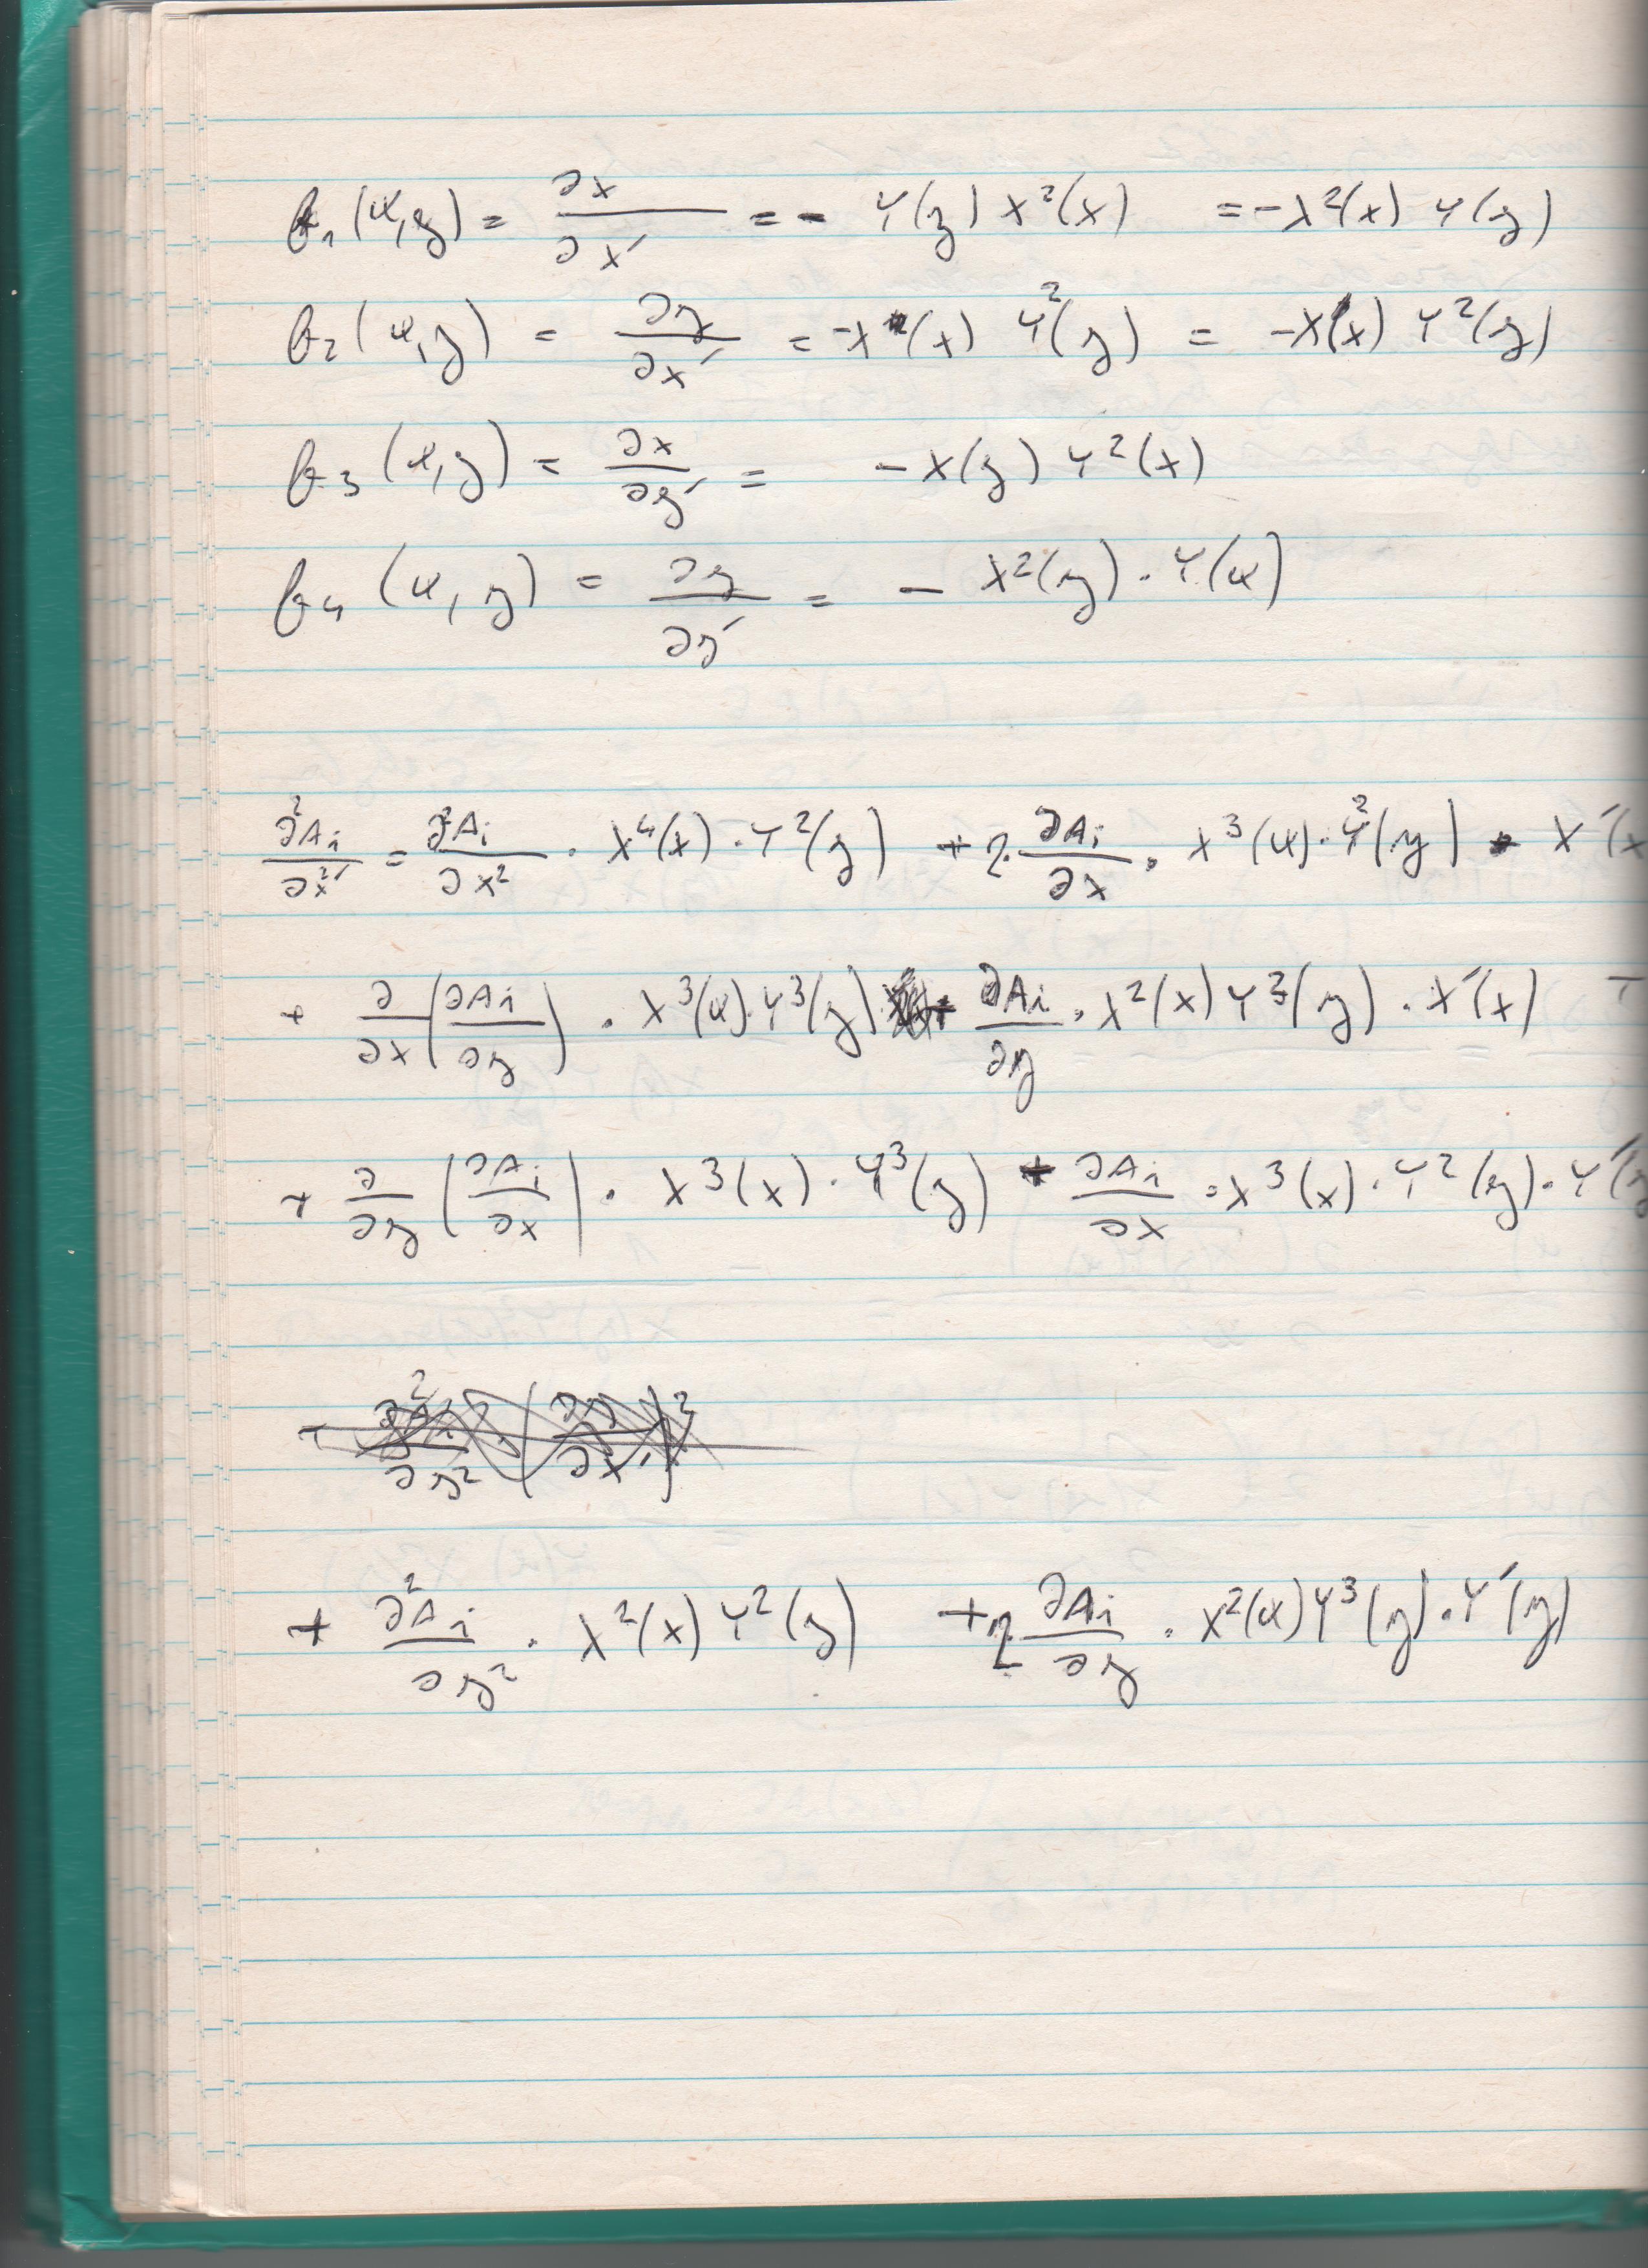 f₁(x,y) = ∂x/∂x′ = - Y(y) X²(x) = -X²(x) Y(y)
f₂(x,y) = ∂y/∂x′ = -X(x) Y²(y) = -X(x) Y²(y)
f₃(x,y) = ∂x/∂y′ = -X(y) Y²(x)
f₄(x,y) = ∂y/∂y′ = - X²(y)·Y(x)
∂²Aᵢ/∂x²′ = ∂²Aᵢ/∂x² · X⁴(x)·Y²(y) + 2·∂Aᵢ/∂x · X³(x)·Y²(y) · X′(x
+ ∂/∂x(∂Aᵢ/∂y) · X³(x)·Y³(y) + ∂Aᵢ/∂y · X²(x) Y³(y) · X′(x) +
+ ∂/∂y(∂Aᵢ/∂x) · X³(x)·Y³(y) + ∂Aᵢ/∂x · X³(x)·Y²(y)·Y′(y
+ ∂²Aᵢ/∂y² · X²(x) Y²(y) + 2 ∂Aᵢ/∂y · X²(x) Y³(y)·Y′(y)